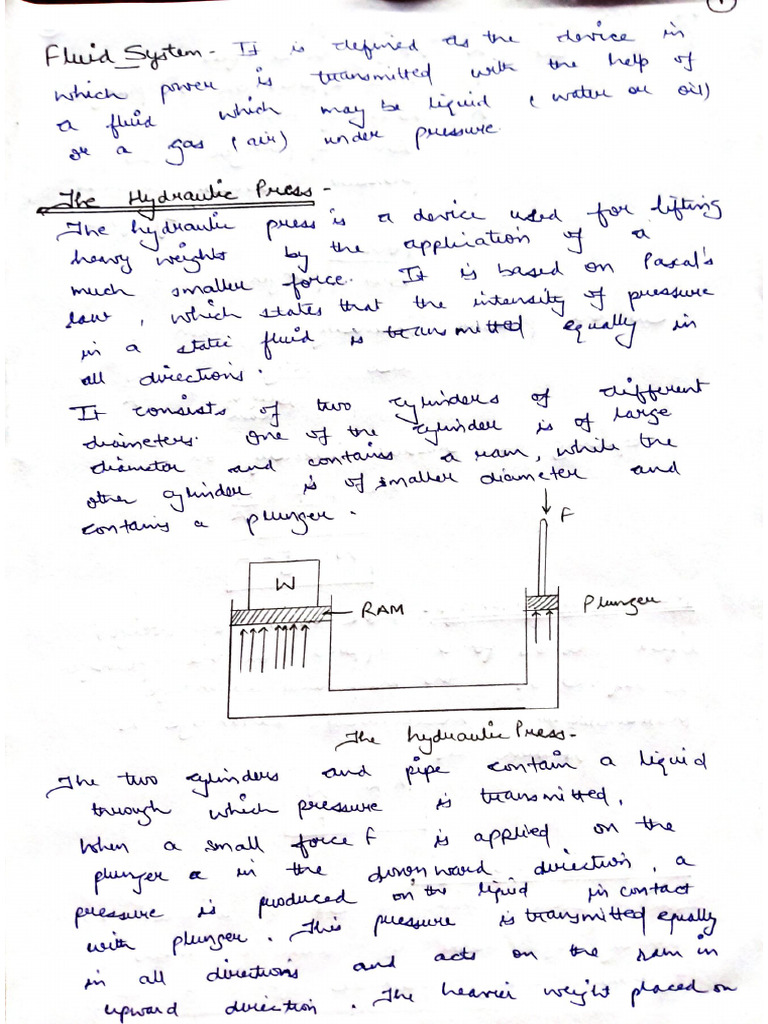 Fluid System - It is defined as the device in
which power is transmitted with the help of
a fluid which may be liquid (water or oil)
or a gas (air) under pressure.
The Hydraulic Press -
The hydraulic press is a device used for lifting
heavy weights by the application of a
much smaller force. It is based on Pascal's
law, which states that the intensity of pressure
in a static fluid is transmitted equally in
all directions.
It consists of two cylinders of different
diameters. One of the cylinder is of large
diameter and contains a ram, while the
other cylinder is of smaller diameter and
contains a plunger.
F
W
RAM
Plunger
The hydraulic Press-
The two cylinders and pipe contain a liquid
through which pressure is transmitted.
When a small force F is applied on the
plunger a in the downward direction, a
pressure is produced on the liquid in contact
with plunger. This pressure is transmitted equally
in all directions and acts on the ram in
upward direction. The heavier weight placed on